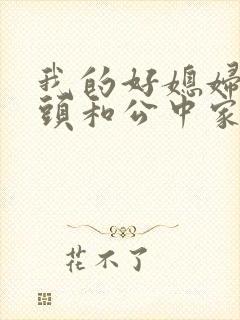 我的好媳婦
頭和公中家
花不了